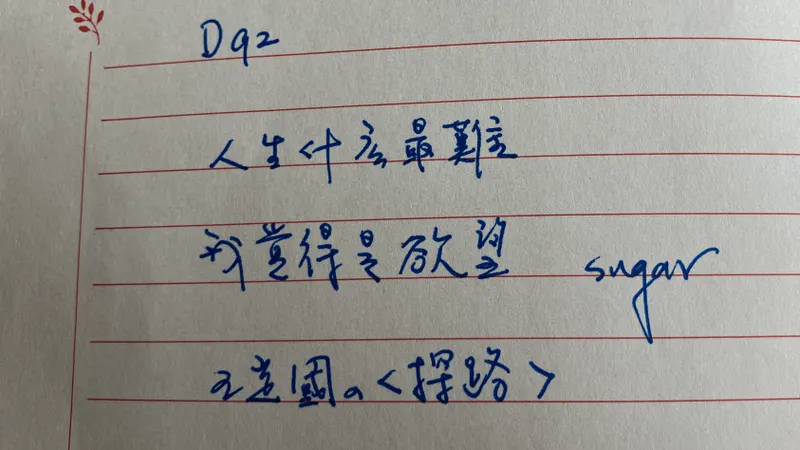 D92
人生什么最難
我覚得是欲望
sugar
王志國。〈探路〉